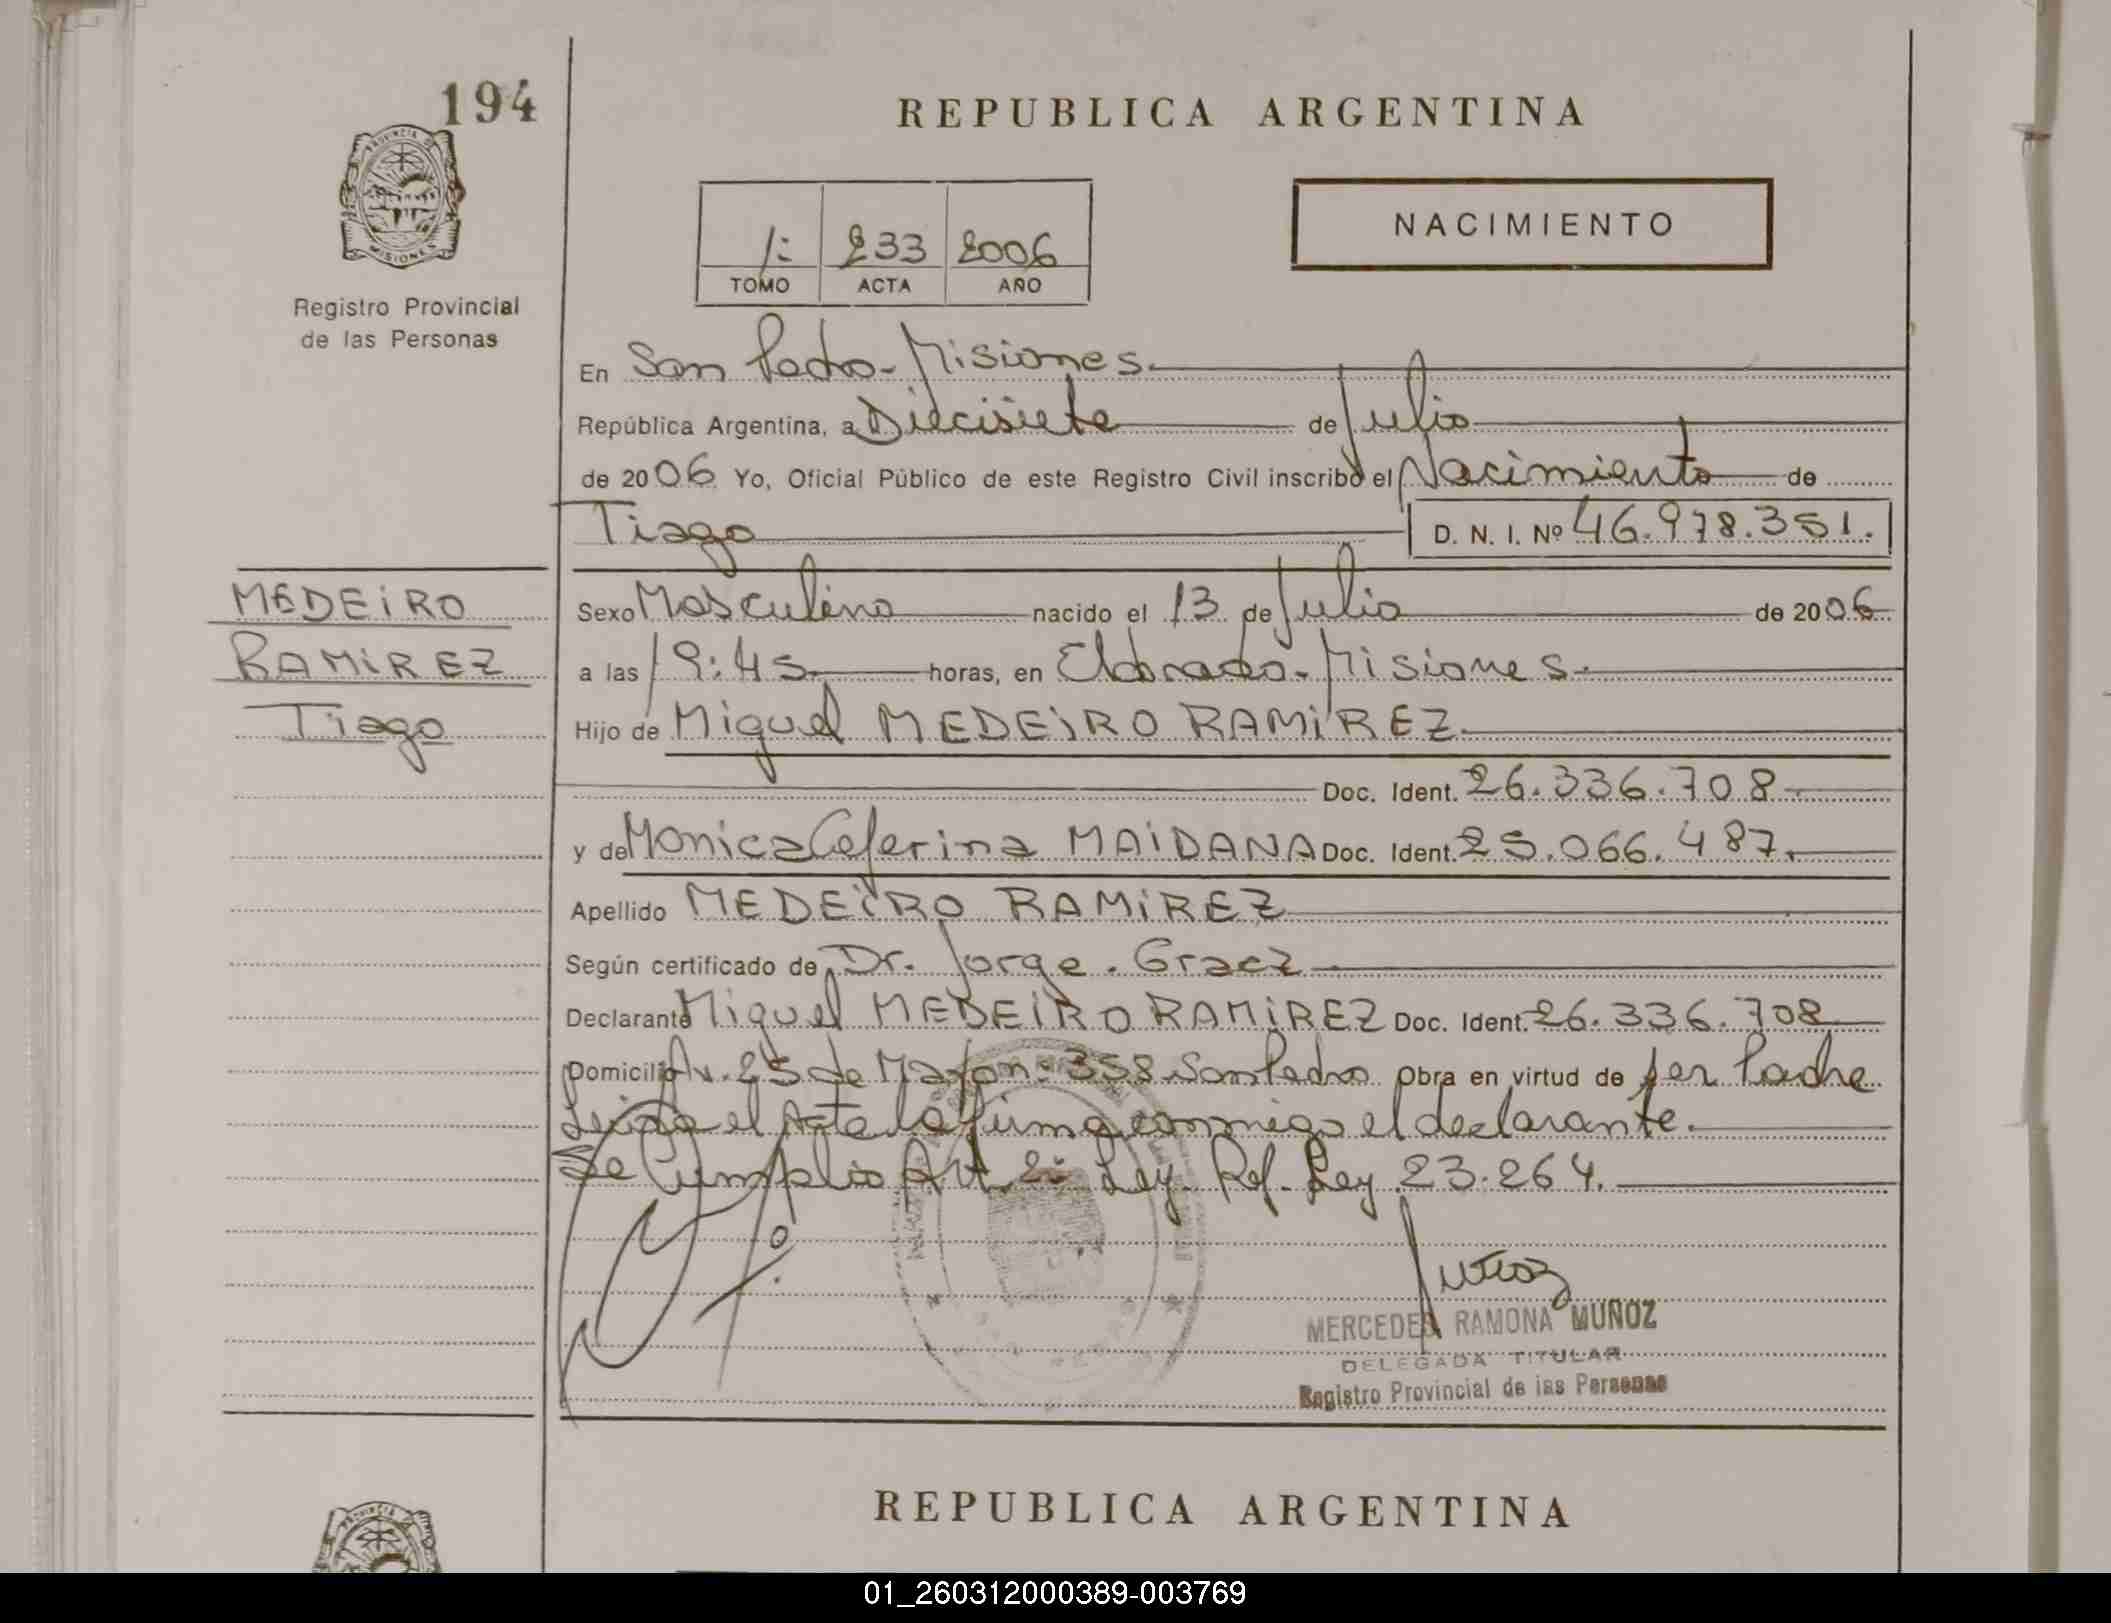 194
REPUBLICA ARGENTINA
PROVINCIA DE
MISIONES
Registro Provincial
de las Personas
NACIMIENTO
1: 233 2006
TOMO ACTA AÑO
En San Pedro - Misiones.
República Argentina, a Diecisiete de Julio
de 2006 Yo, Oficial Público de este Registro Civil inscribo el Nacimiento de
Tiago D. N. I. Nº 46.978.351.
MEDEIRO
RAMIREZ
Tiago
Sexo Masculino nacido el 13 de Julio de 2006
a las 19:45 horas, en Eldorado - Misiones.
Hijo de Miguel MEDEIRO RAMIREZ
Doc. Ident. 26.336.708
y de Monica Ceferina MAIDANA Doc. Ident. 25.066.487.
Apellido MEDEIRO RAMIREZ
Según certificado de Dr. Jorge. Gracz
Declarante Miguel MEDEIRO RAMIREZ Doc. Ident. 26.336.708
Domicilio Av. 25 de Mayo nº 358 San Pedro Obra en virtud de ser Padre
Leida el Acta la firma conmigo el declarante.
Se Cumplio Art. 2: Ley. Ref. Ley 23.264.
MERCEDES RAMONA MUÑOZ
DELEGADA TITULAR
Registro Provincial de las Personas
REPUBLICA ARGENTINA
01_260312000389-003769